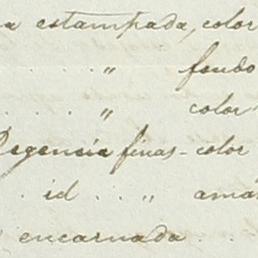 a estampada, color
. . . " fondo
. . . " color
Regencia finas - color
. id . . "
encarnada . .